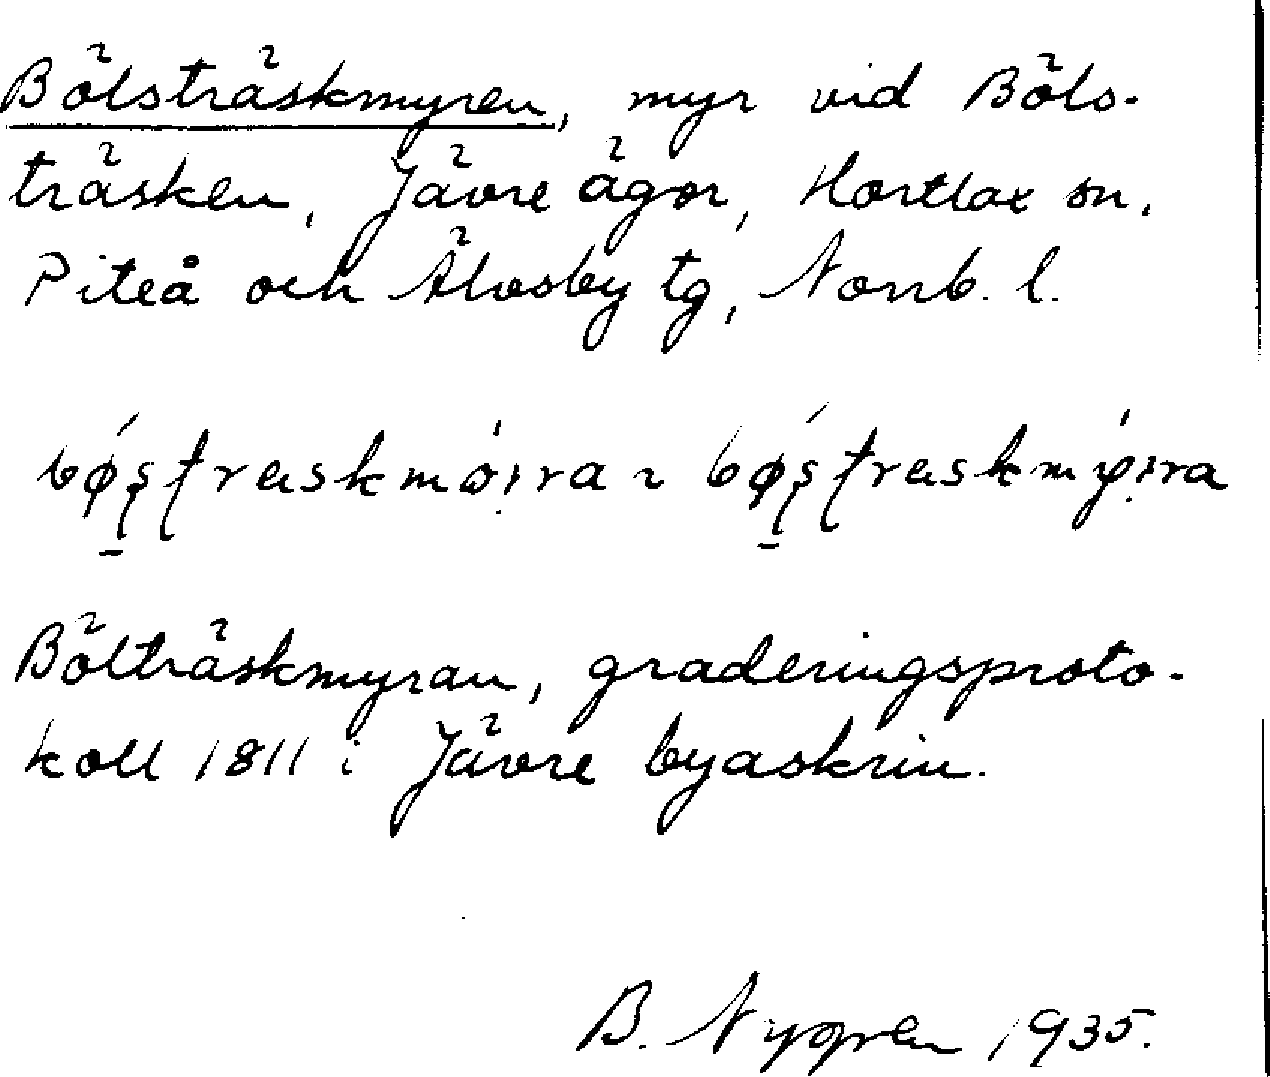 Bölsträskmyren, myr vid Böls-
träsken, Jävre ägor, Hortlax sn,
Piteå och Älvsby tg, Norrb. l.
Bölträskmyran, graderingsproto-
koll 1811 i Jävre byaskrin.
B. Nygren 1935.